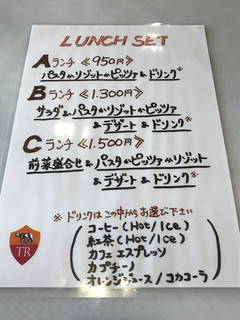 LUNCH SET
Aランチ ≪950円≫
パスタかリゾットかピッツァ&ドリンク※
Bランチ ≪1.300円≫
サラダ&パスタかリゾットかピッツァ
&デザート&ドリンク※
Cランチ ≪1.500円≫
前菜盛合せ&パスタかピッツァかリゾット
&デザート&ドリンク※
※ドリンクはこの中からお選び下さい
コーヒー(Hot/Ice)
紅茶(Hot/Ice)
カフェ エスプレッソ
カプチーノ
オレンジジュース/コカコーラ
TR